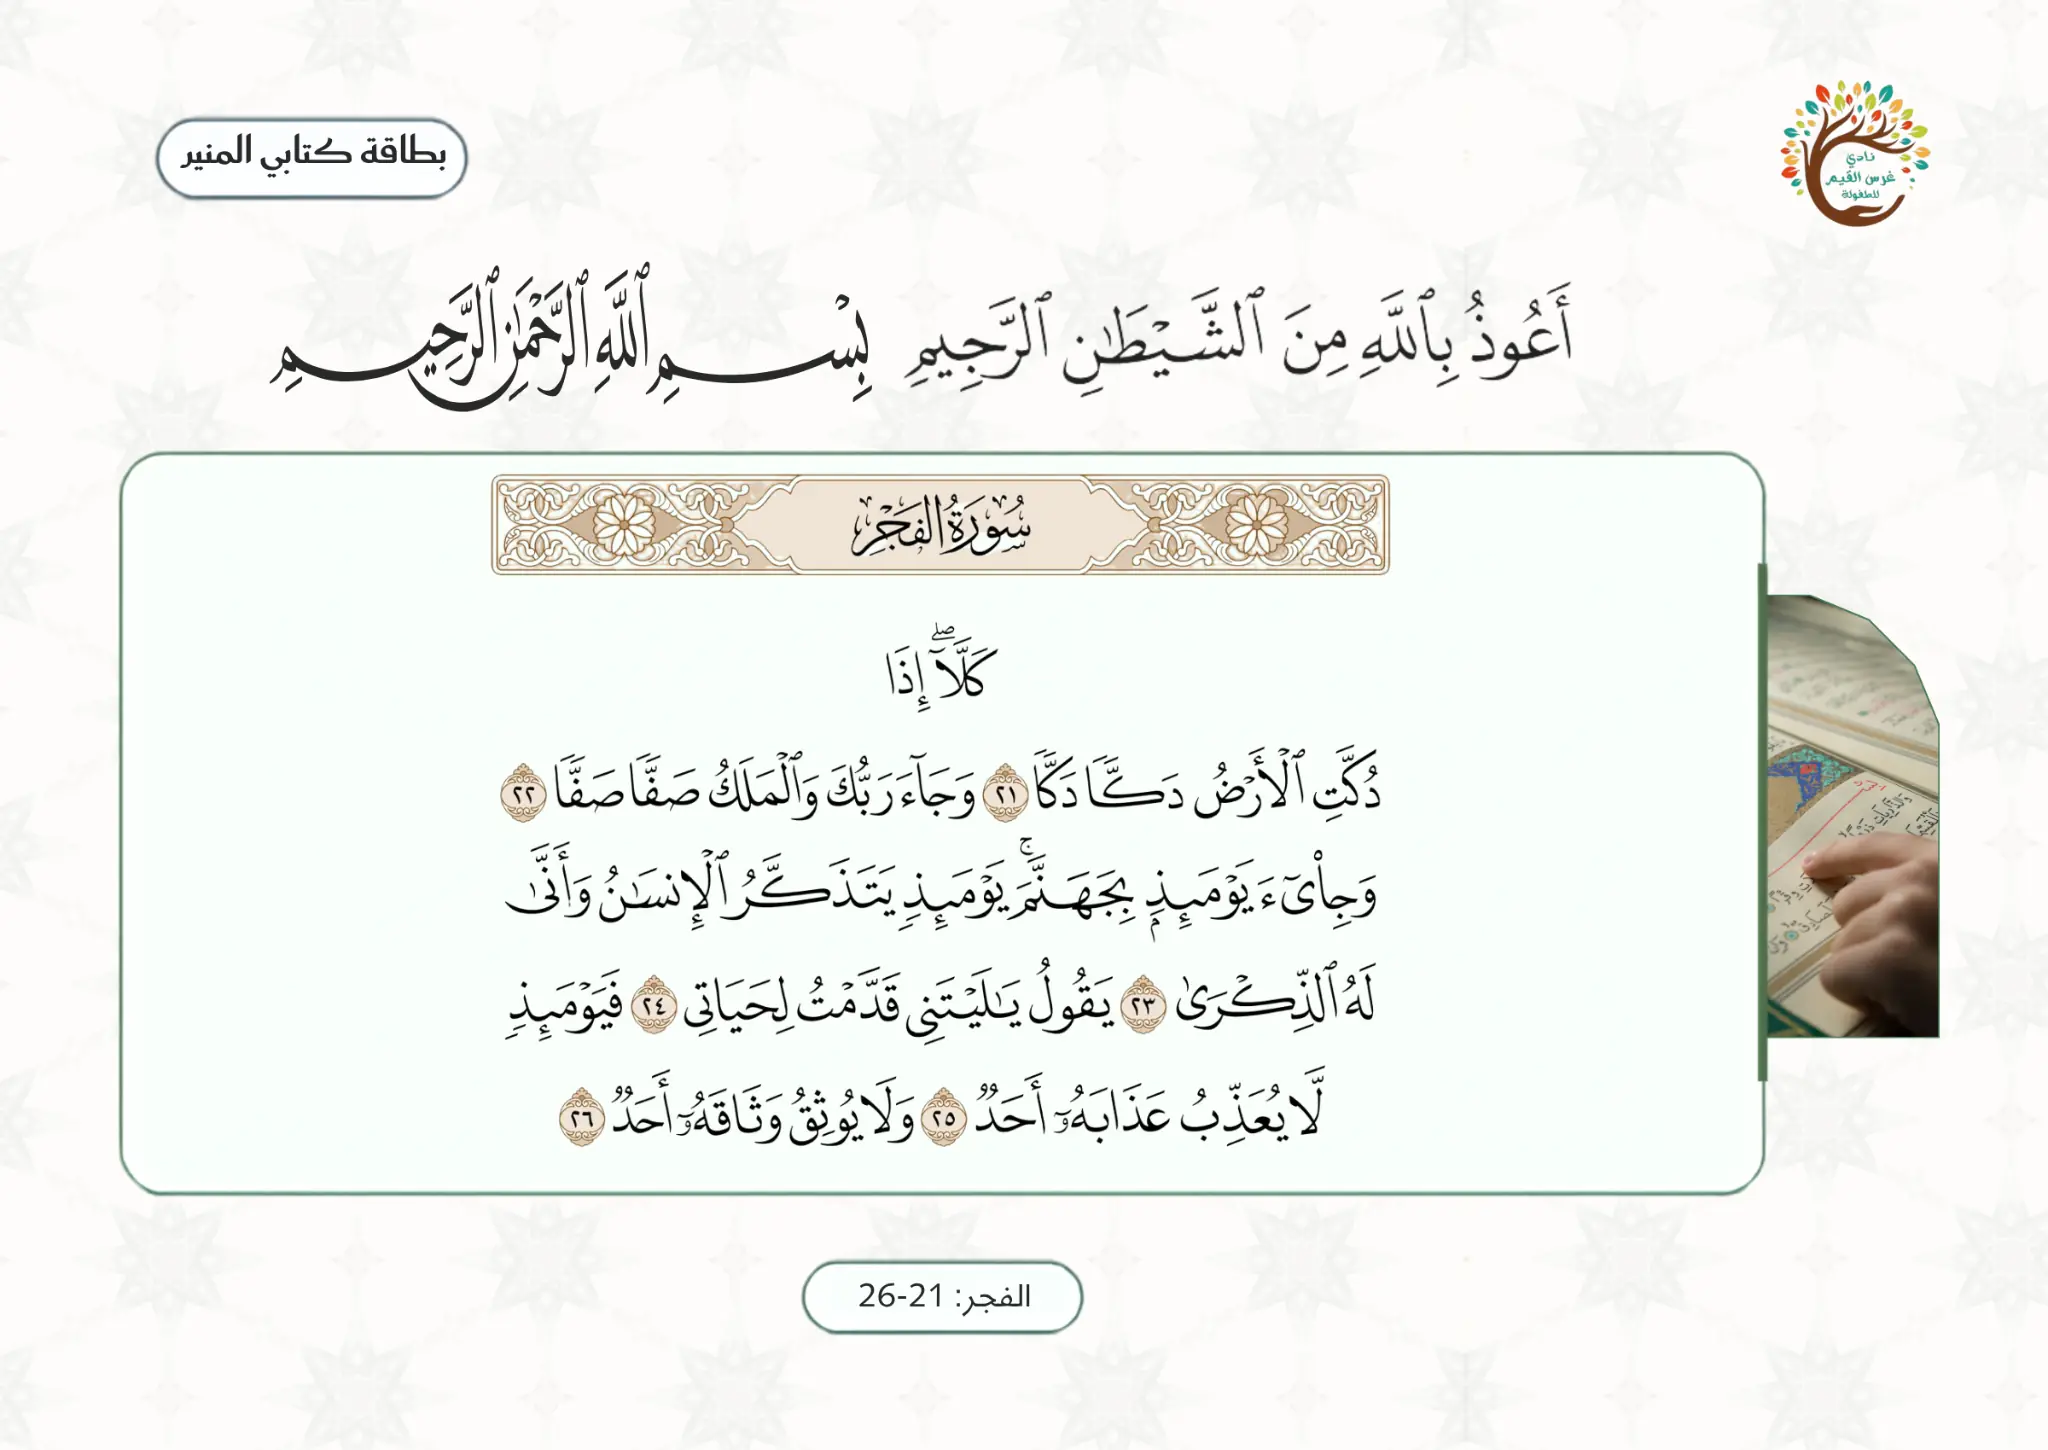 نادي
غرس القيم
للطفولة
بطاقة كتابي المنير
أَعُوذُ بِٱللَّهِ مِنَ ٱلشَّيْطَٰنِ ٱلرَّجِيمِ بِسْمِ ٱللَّهِ ٱلرَّحْمَٰنِ ٱلرَّحِيمِ
سُورَةُ الفَجْرِ
كَلَّآۖ إِذَا
دُكَّتِ ٱلْأَرْضُ دَكًّا دَكًّا ٢١ وَجَآءَ رَبُّكَ وَٱلْمَلَكُ صَفًّا صَفًّا ٢٢
وَجِا۟ىٓءَ يَوْمَئِذٍۭ بِجَهَنَّمَۚ يَوْمَئِذٍ يَتَذَكَّرُ ٱلْإِنسَٰنُ وَأَنَّىٰ
لَهُ ٱلذِّكْرَىٰ ٢٣ يَقُولُ يَٰلَيْتَنِى قَدَّمْتُ لِحَيَاتِى ٢٤ فَيَوْمَئِذٍ
لَّا يُعَذِّبُ عَذَابَهُۥٓ أَحَدٌ ٢٥ وَلَا يُوثِقُ وَثَاقَهُۥٓ أَحَدٌ ٢٦
الفجر: 21-26